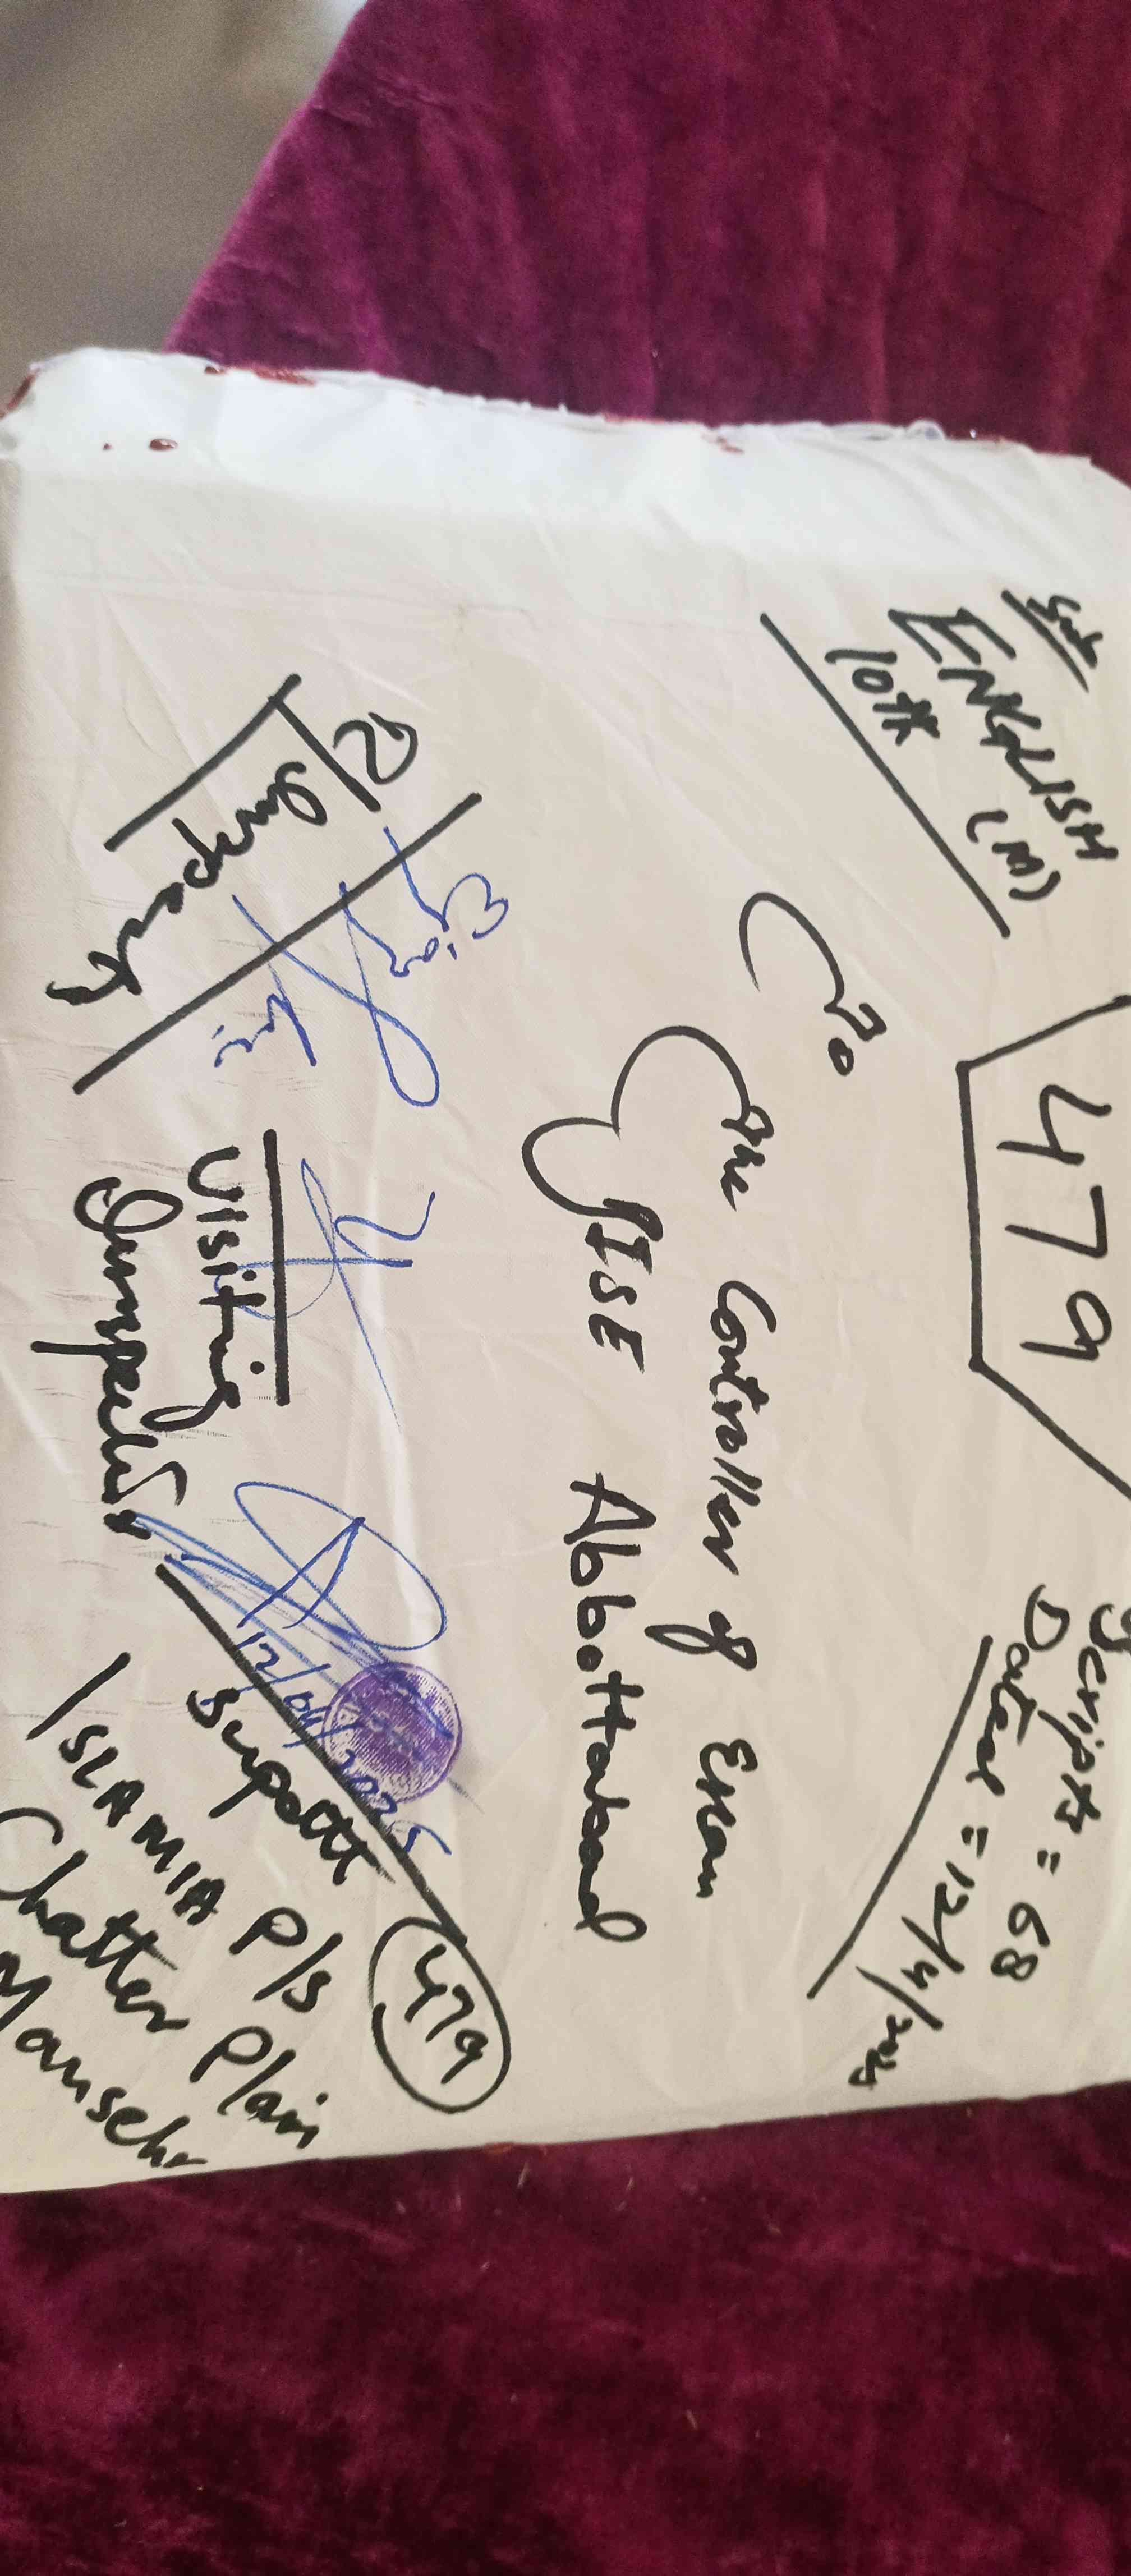 Sub
ENGLISH (M)
10th
479
Scripts = 68
Dated = 12/4/2025
To
The Controller of Exam
BISE Abbottabad
R/Inspector
Visiting
Inspector
12/04/2025
Supdtt
479
ISLAMIA P/S
Chatter Plain
Mansehr